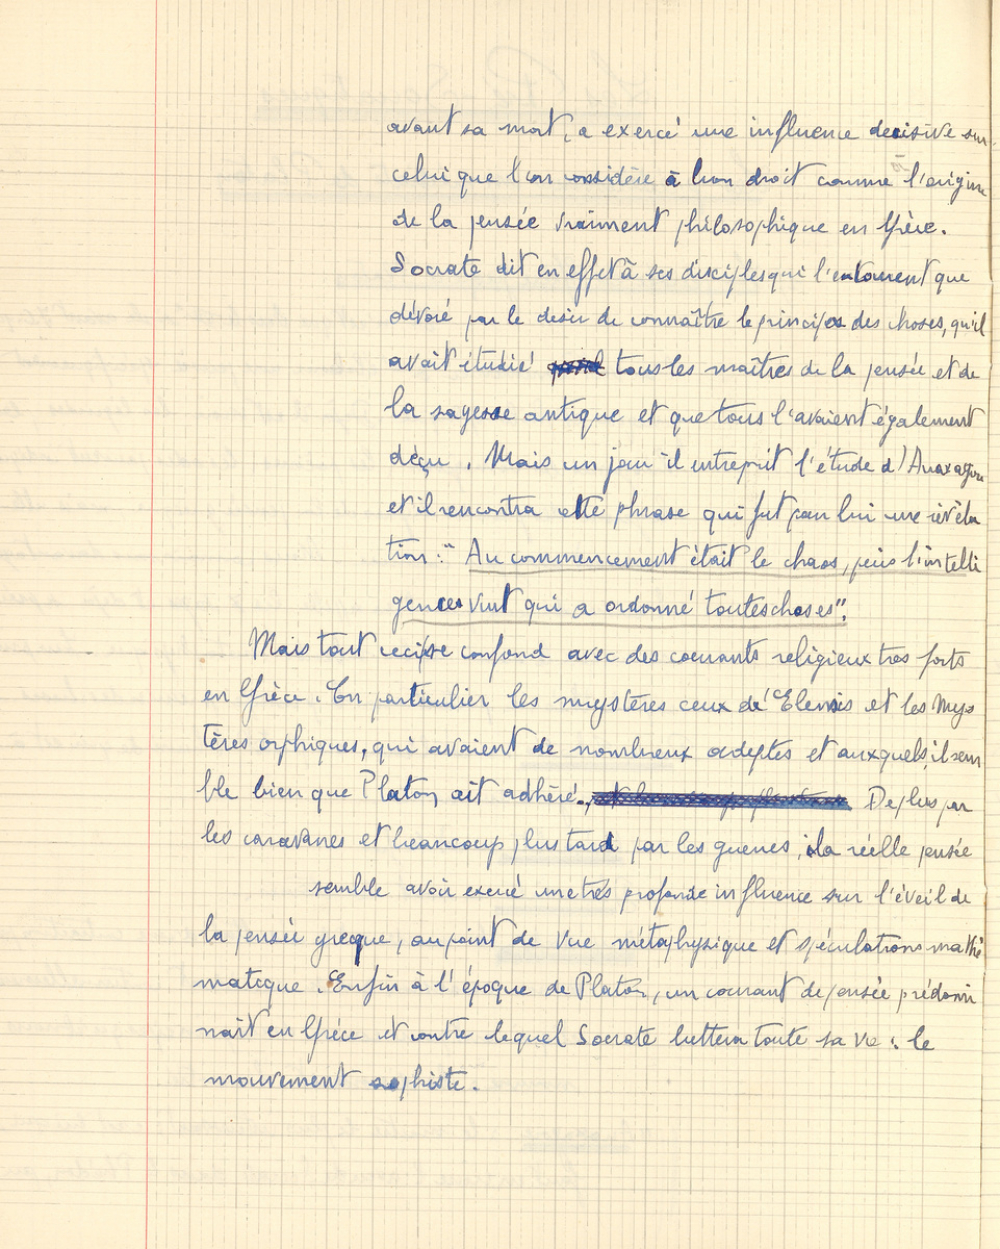 avant sa mort, a exercé une influence decisive sur
celui que l'on considère à bon droit comme l'origine
de la pensée vraiment philosophique en Grèce.
Socrate dit en effet à ses disciples qui l'entourent que
dévoré par le desir de connaître le principe des choses, qu'il
avait étudié tous les maîtres de la pensée et de
la sagesse antique et que tous l'avaient également
déçu. Mais un jour il entreprit l'étude d'Anaxagore
et il rencontra cette phrase qui fut pour lui une révéla
tion : "Au commencement était le chaos, puis l'intelli
gence vint qui a ordonné toutes choses".
Mais tout ceci se confond avec des courants religieux tres forts
en Grèce. En particulier les mystères ceux d'Eleusis et les Mys
tères orphiques, qui avaient de nombreux adeptes et auxquels, il sem
ble bien que Platon ait adhéré. De plus par
les caravanes et beaucoup plus tard par les guerres, la réelle pensée
semble avoir exercé une très profonde influence sur l'éveil de
la pensée grecque, au point de vue métaphysique et spéculations mathé
matique. Enfin à l'époque de Platon, un courant de pensée prédomi
nait en Grèce et contre lequel Socrate luttera toute sa vie : le
mouvement sophiste.